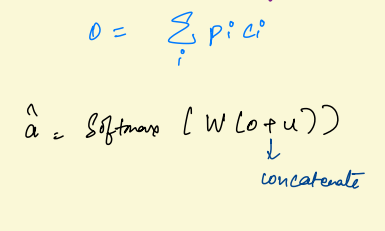 o = Σ pi ci
i
â = Softmax ( W (o + u))
↓
concatenate